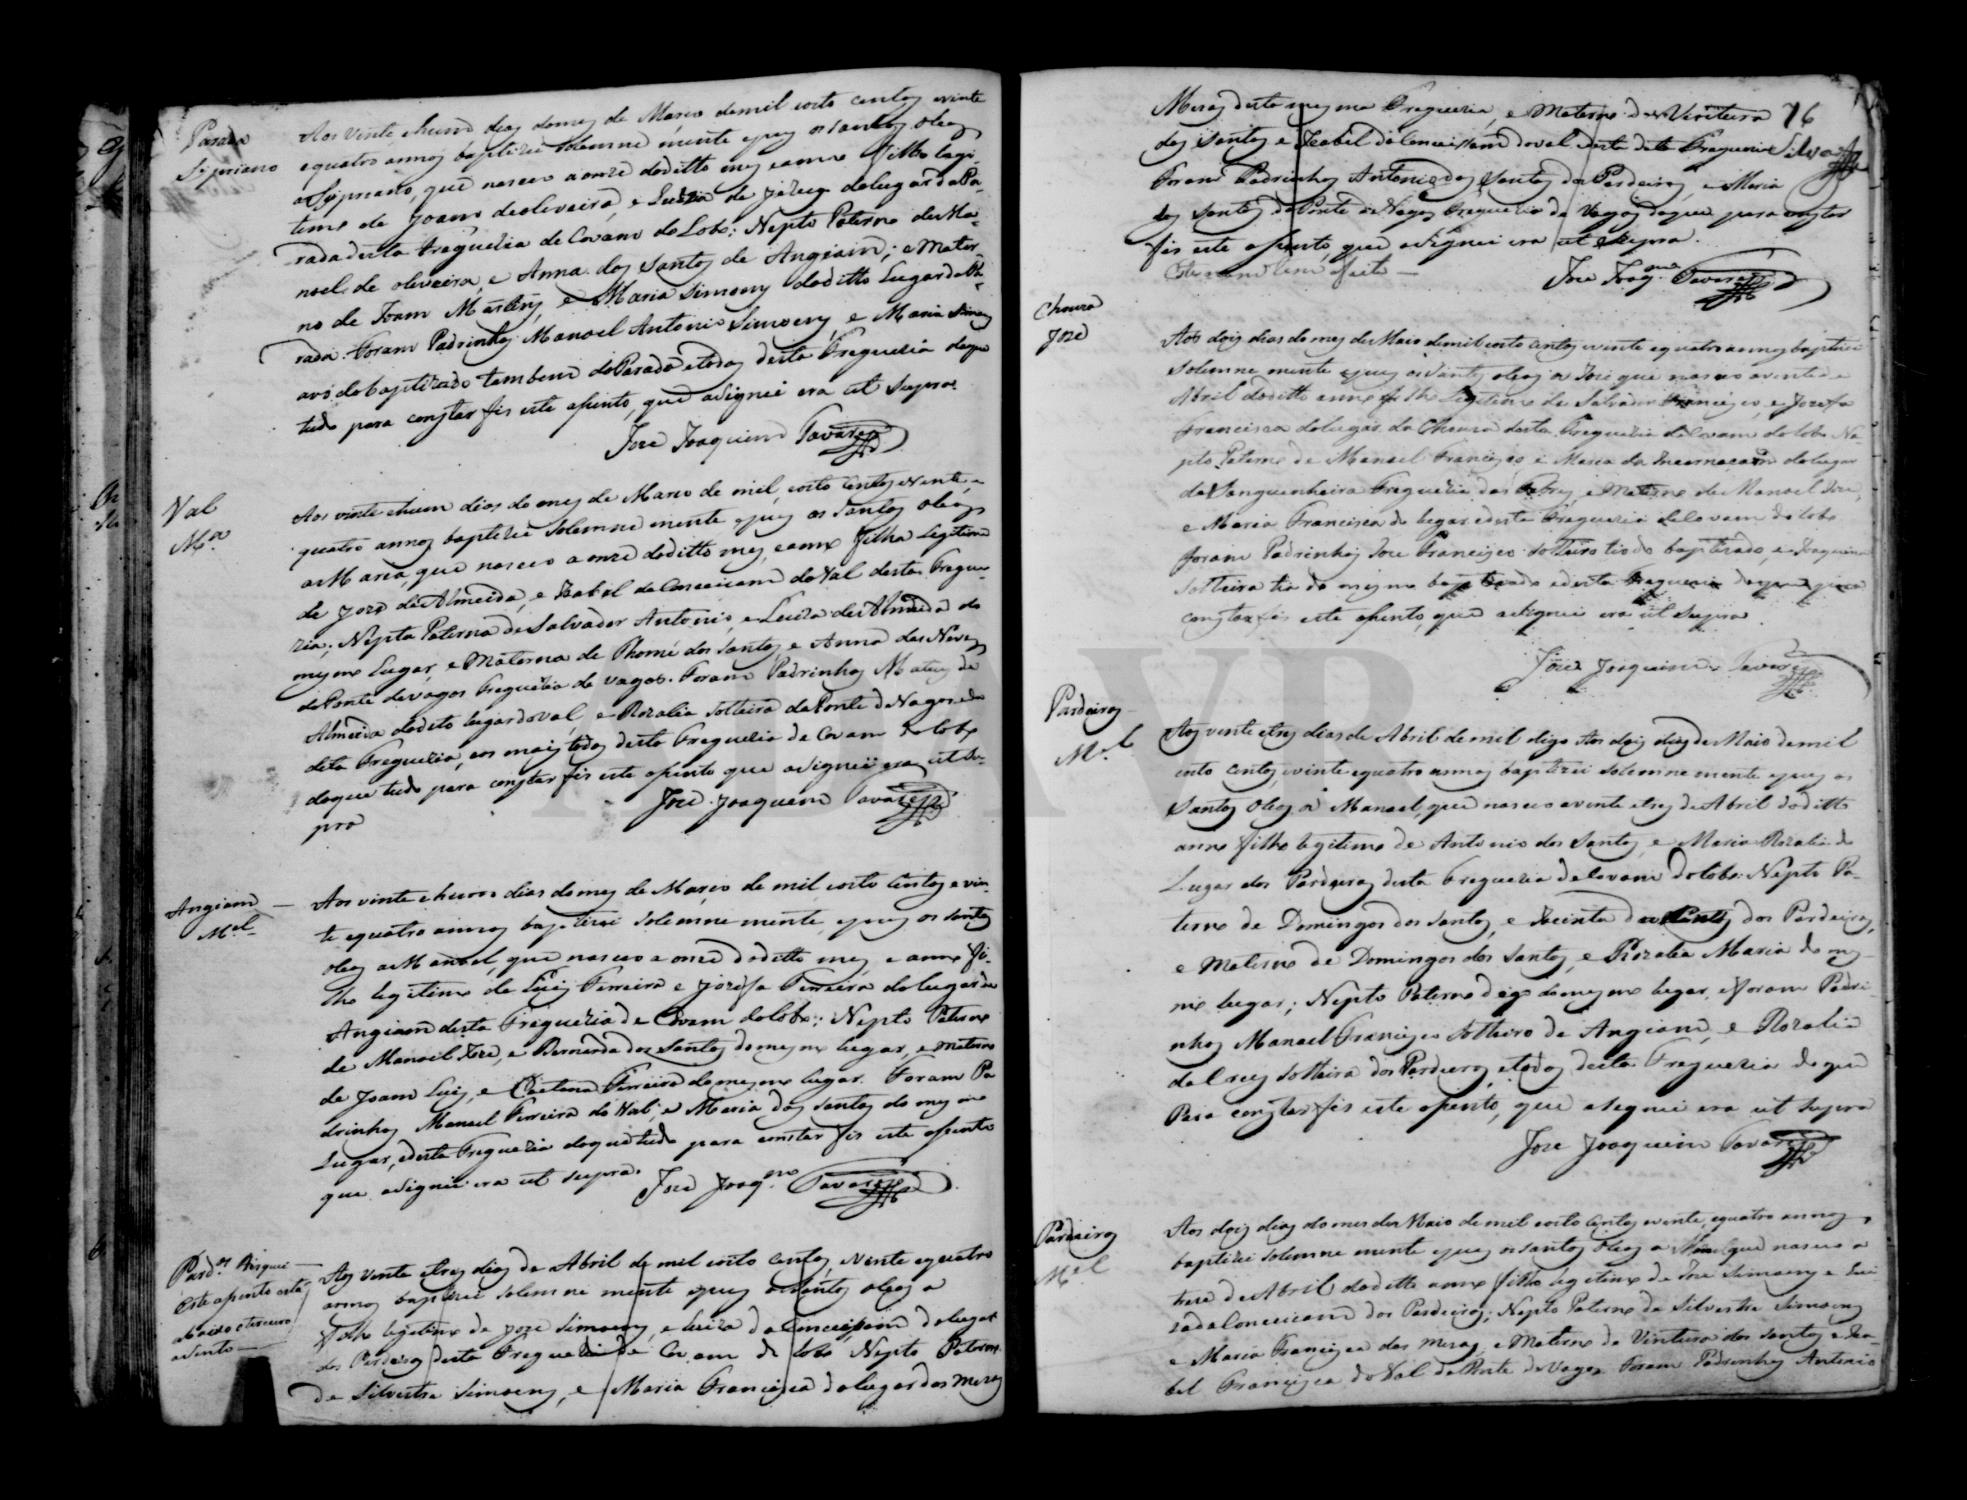 Parada
Sipriano
Aos vinte ehum dias domes de Marso demil oito centos evinte
equatro annos baptizei solemne mente epus os santos oleos
a Sipriano, que nasceo aonze doditto mes eanno filho legi-
timo de Joam deoliveira, e Luzia de Jezus dolugar da Pa-
rada desta freguezia de Covam do Lobo; Nepto Paterno de Ma-
noel de oliveira, e Anna dos Santos de Angiam; e Mater-
no de Joam Martins, e Maria Simoens doditto Lugar da Pa-
rada. Foram Padrinhos Manoel Antonio Simoens, e Maria Simoens
avó do baptizado tambem da Parada etodos desta Freguezia doque
tudo para constar fis este asento, que asignei era ut supra.
Joze Joaquim Tavares
Val
M.ª
Aos vinte ehum dias do mes de Marso de mil, oito centos evinte, e
quatro annos baptizei solemne mente epus os Santos oleos
a Maria, que nasceo aonze doditto mes, eanno filha legitima
de Joze de Almeida, e Izabel da Conceicam do Val desta Fregue-
zia; Nepta Paterna de Salvador Antonio, e Luiza de Almeida do
mesmo Lugar, e Materna de Thomé dos Santos, e Anna das Neves
da Ponte devagos Freguezia de vagos. Foram Padrinhos Mateus de
Almeida dodito lugar do val, e Rozalia solteira da Ponte de Vagos e da
dita Freguezia, eos mais todos desta Freguezia de Covam do lobo
doque tudo para constar fis este asento que asignei era ut su-
pra
Joze Joaquim Tavares
Angiam
M.el
Aos vinte ehum dias do mes de Março de mil oito centos evin-
te equatro annos baptizei solemne mente, epus os santos
oleos a Manoel, que nasceo a onze doditto mes, e anno fi-
lho legitimo de Luis Ferreira e Jozefa Ferreira do lugar de
Angiam desta Freguezia de Covam dolobo; Nepto Paterno
de Manoel Joze, e Bernarda dos Santos domesmo lugar, e materno
de Joam Luis, e Ferreira domesmo lugar. Foram Pa
drinhos Manoel Ferreira do Val e Maria dos santos do mesmo
Lugar, edesta Freguezia doque tudo para constar fis este asento
que asignei era ut supra.
Joze Joaq.m Tavares
Pard.os
Este asento está
abaixo e terceiro
asento
Aos vinte etres dias de Abril de mil oito centos, evinte equatro
annos baptizei solemne mente epus os santos oleos a
filho legitimo de Joze Simoens, e Luiza da Conceicam dolugar
dos Pardeiros desta Freguezia de Covam do lobo, Nepto Paterno
de Silvestre Simoens, e Maria Francisca dolugar das Meras
76
Silva
Meras desta mesma Freguezia, e Materno de Ventura
dos Santos e Izabel da Conceissam doval desta dita Freguezia
Foram Padrinhos Antonio dos Santos dos Pardeiros, e Maria
dos Santos da Ponte de Vagos Freguezia de Vagos doque para constar
fis este asento, que asignei era ut supra.
Joze Joaq.m Tavares
Choura
Joze
Aos dois dias do mes de Maio demil oito centos evinte equatro annos baptizei
solemne mente epus os santos oleos a Joze que nasceo avinte de
Abril doditto anno filho Legitimo de Salvador Francisco, e Jozefa
Francisca dolugar da Choura desta Freguezia de Covam dolobo Ne-
pto Paterno de Manoel Francisco, e Maria da Incarnacam dolugar
da Sanguinheira Freguezia das Febres, e Materno de Manoel Joze,
e Maria Francisca do lugar edesta Freguezia de Covam do lobo
foram Padrinhos Joze Francisco solteiro tio do baptizado, e Joaquina
solteira tia do mesmo baptizado edesta Freguezia doque para
constar fis este asento, que asignei era ut supra
Joze Joaquim Tavares
Pardeiros
M.el
Aos vinte etres dias de Abril de mil digo Aos dois dias de Maio de mil
oito centos, evinte equatro annos baptizei solemne mente epus os
Santos oleos a Manoel, que nasceo avinte etres de Abril doditto
anno filho legitimo de Antonio dos Santos, e Maria Rozalia do
Lugar dos Pardeiros desta Freguezia de Covam do lobo: Nepto Pa-
terno de Domingos dos santos, e Jacinta dos Santos dos Pardeiros,
e Materno de Domingos dos Santos, e Rozalia Maria do mes-
mo lugar; Nepto Paterno digo domesmo lugar. Foram Padri-
nhos Manoel Francisco solteiro de Angiam, e Rozalia
da Cruz solteira dos Pardeiros, etodos desta Freguezia do que
Para constar fis este asento, que asignei era ut supra
Joze Joaquim Tavares
Pardeiros
M.el
Aos dois dias do mes de Maio de mil oito centos evinte, equatro annos
baptizei solemne mente epus os santos oleos a Manoel que nasceo a
treze de Abril doditto anno filho legitimo de Joze Simoens e Lui
za da Conceicam dos Pardeiros; Nepto Paterno de Silvestre Simoens
e Maria Francisca das Meras, e Materno de Ventura dos santos e Iza-
bel Francisca do Val da Ponte de Vagos Foram Padrinhos Antonio